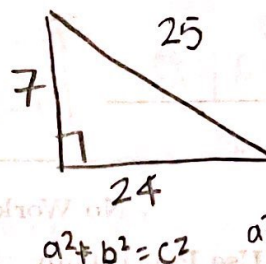 25
7
24
a²+b²=c²